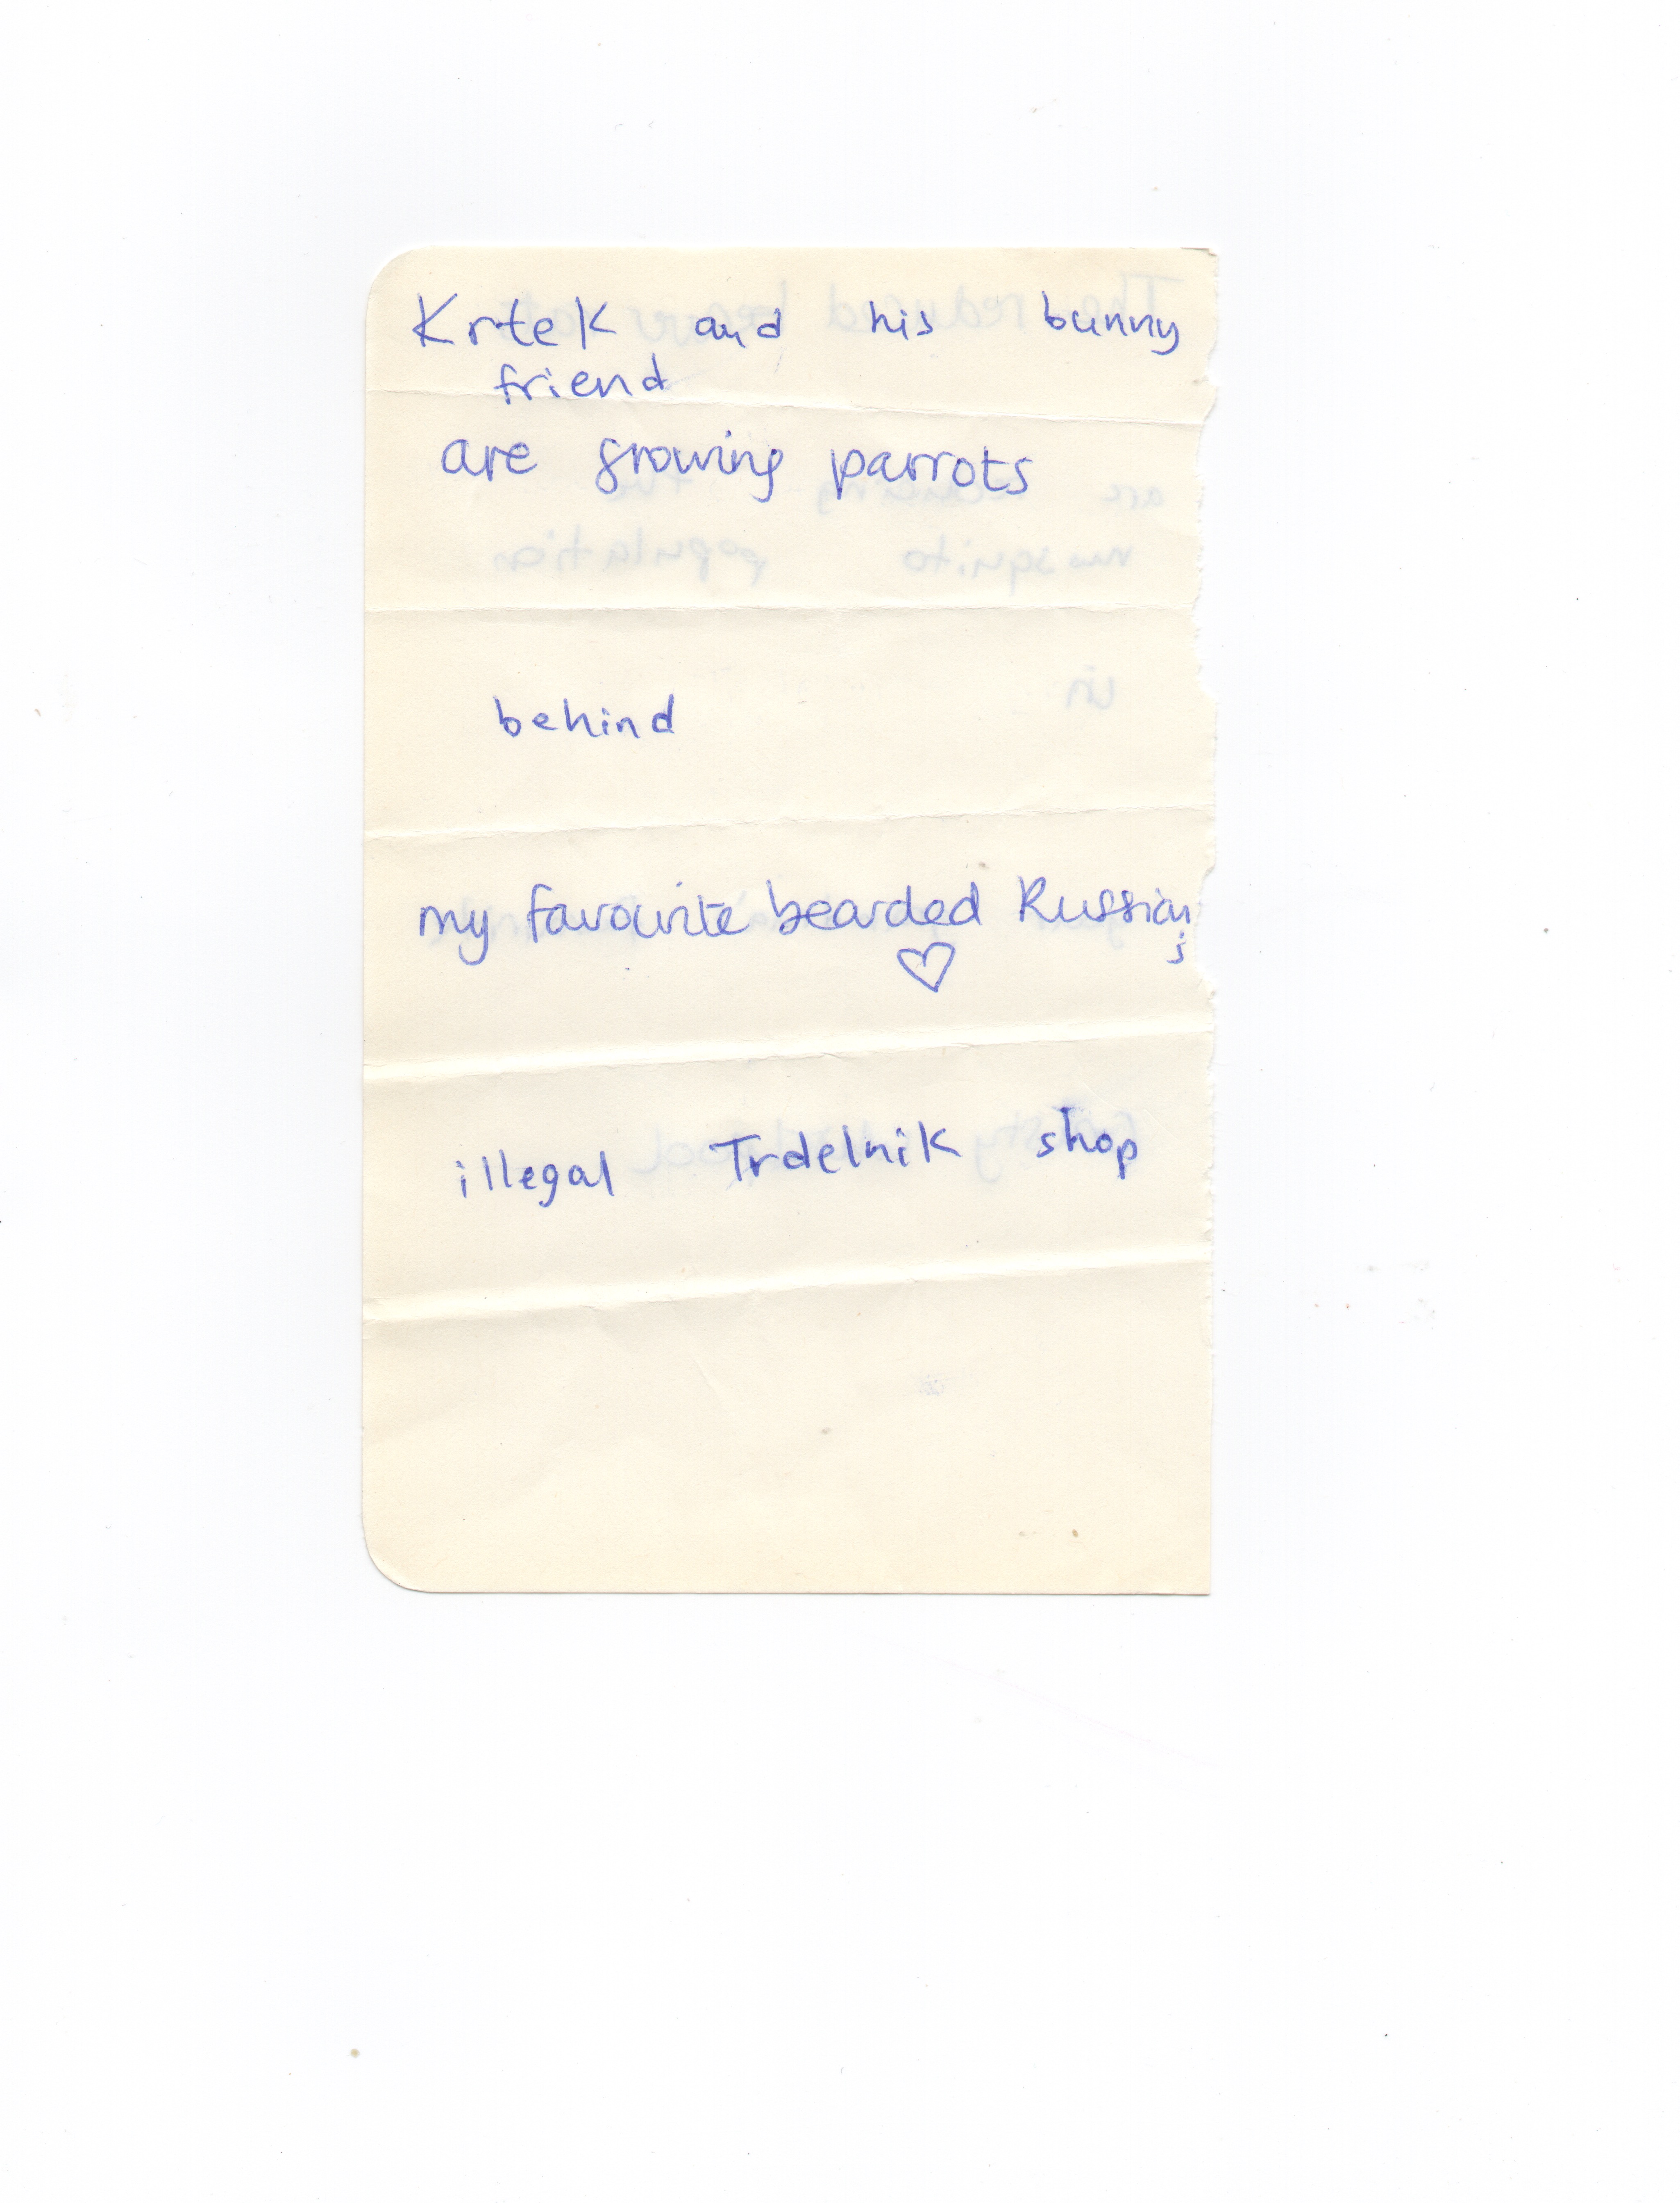 Krtek and his bunny
friend
are growing parrots
behind
my favourite bearded Russian
's
illegal Trdelnik shop